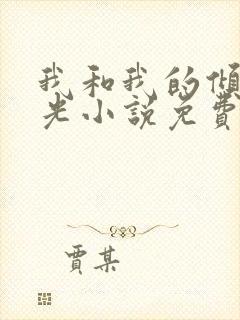 我和我的傾
光小說免費
賈某